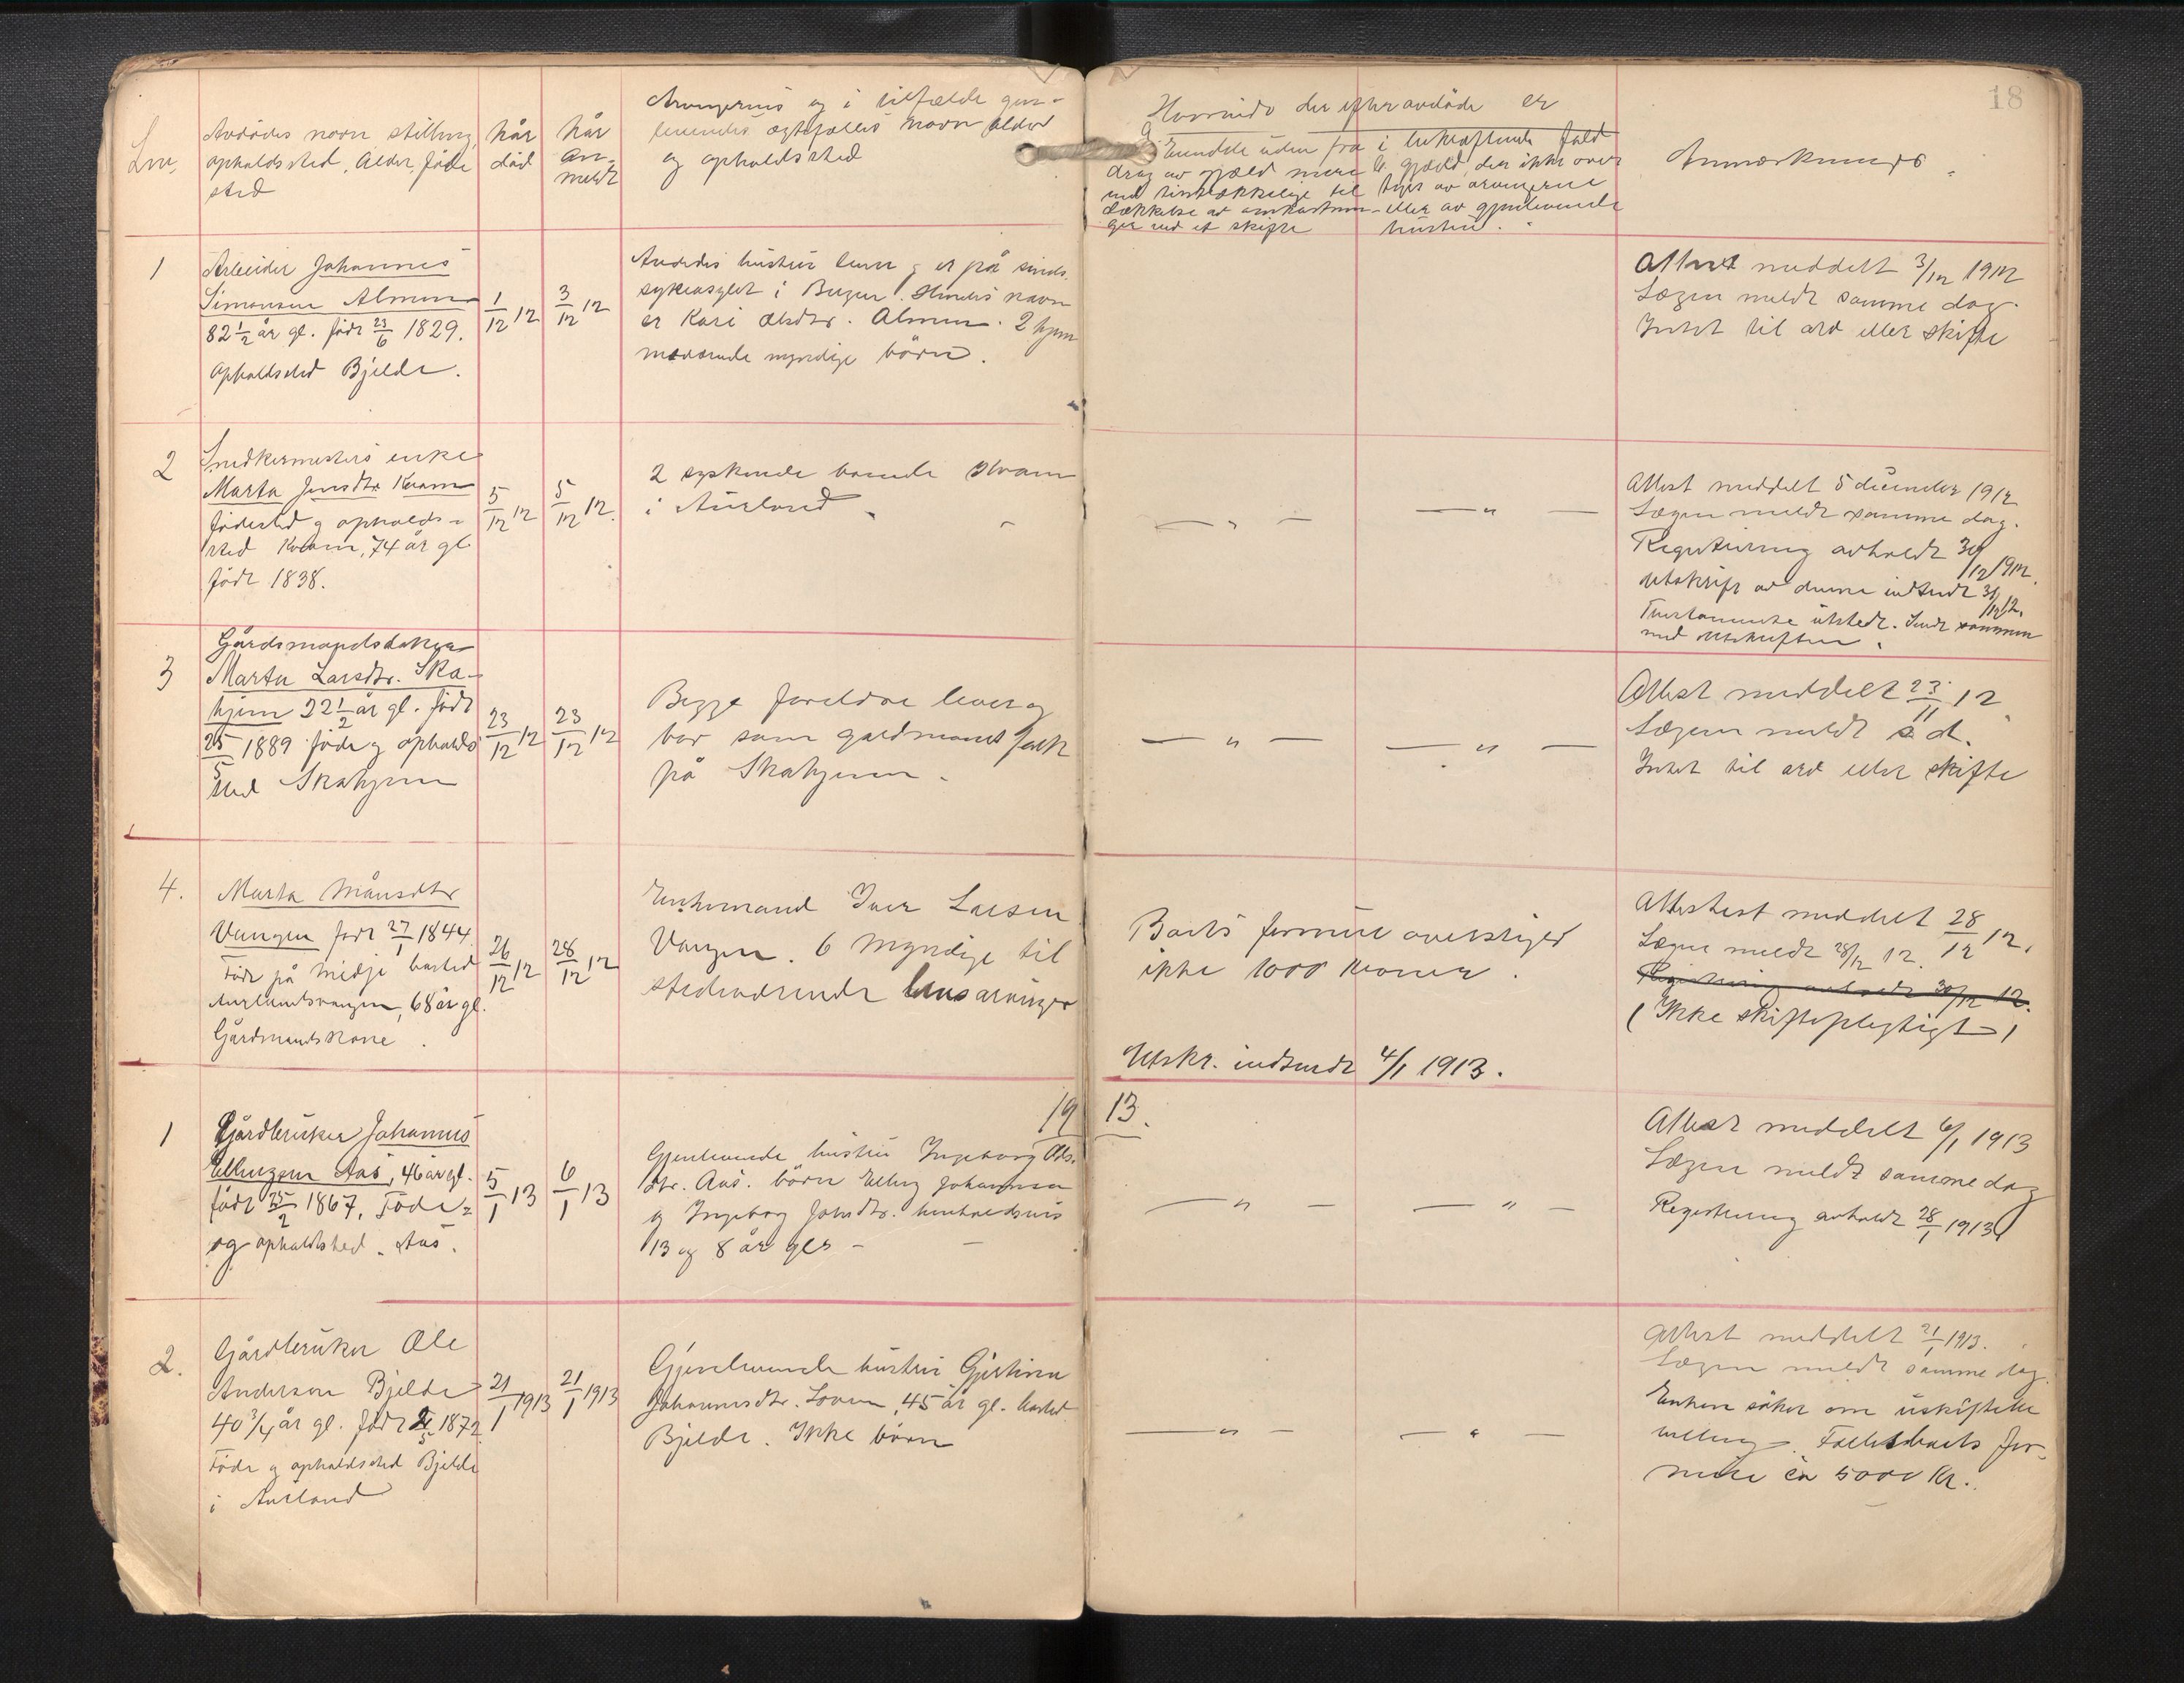 Lnr.
Avdödes navn stilling,
opholdssted, Alder, föde
sted
når
död
når
an-
meldt
Arvingernes og i tilfælde gjen-
levendes ægtefælles navn alder
og opholdssted
Hvorvidt der efter avdöde er
midler til dækkelse av omkostnin-
ger ved et skifte
eller av gjenlevende
hustru.
Anmerkninger
18
1
Arbeider Johannes
Simonsen Almen
82 1/2 år gl. född 23/6 1829.
Opholdssted Bjelde.
1/12 12
3/12 12
Avdödes hustru lever og er på sinds-
sykeasylet i Bergen. Hendes navn
er Kari Olsdtr. Almen. 2 hjem
meværende myndige börn.
Attest meddelt 3/12 1912
Lægen meldt samme dag.
Intet til arv eller skifte
2
Snedkermesters enke
Marta Jensdtr. Kvam
födested og opholds-
sted Kvam, 74 år gl.
född 1838.
5/12 12
5/12 12.
2 syskende boende Kvam
i Aurland.
— " —
— " —
Attest meddelt 5 december 1912
Lægen meldt samme dag.
Registrering avholdt 30/12 1912.
Utskrift av denne indsendt 31/12 12.
Testamente utstedt. Sendt sammen
med utskriften.
3
Gårdsmandsdatter
Marta Larsdtr. Ska-
hjem 22 1/2 år gl. född
25/5 1889 föde og opholds
sted Skahjem
23/12 12
23/12 12
Begge foreldre lever og
bor som gardmands folk
på Skahjem.
— " —
— " —
Attest meddelt 23/11 12
Lægen meldt s. d.
Intet til arv eller skifte
4.
Marta Månsdtr
Vangen född 27/1 1844.
Född på Midje bosted
Aurlandsvangen, 68 år gl.
Gårdmandskone.
26/12 12
28/12 12
Enkemand Iver Larsen
Vangen. 6 Myndige til
stedeværende livsarvinger
Boets formue overstiger
ikke 1000 kroner.
Utskr. indsendt 4/1 1913.
Attestest meddelt 28/12 12.
Lægen meldt 28/12 12.
Registrering avholdt 30/12 12.
(Ikke skiftepligtigt)
1913.
1
Gårdbruker Johannes
Ellingsen Aas, 46 år gl.
född 25/2 1867. Föde-
og opholdssted. Aas.
5/1 13
6/1 13
Gjenlevende hustru Ingeborg Ols.
dtr. Aas. börn Elling Johannesen
og Ingeborg Johsdtr. henholdsvis
13 og 8 år gle —
— " —
— " —
Attest meddelt 6/1 1913
Lægen meldt samme dag
Registrering avholdt 28/1 1913
2.
Gårdbruker Ole
Anderson Bjelde
40 3/4 år gl. född 1872
Föde og opholdssted Bjelde
i Aurland
21/1 1913
21/1 1913
Gjenlevende hustru Gjertina
Johannesdtr. Loven, 45 år gl. bosted
Bjelde. Ikke börn
— " —
— " —
Attest meddelt 21/1 1913.
Lægen meldt samme dag.
Enken söker om uskiftete
bevilling. Fællesboets for-
mue ca 5000 kr.